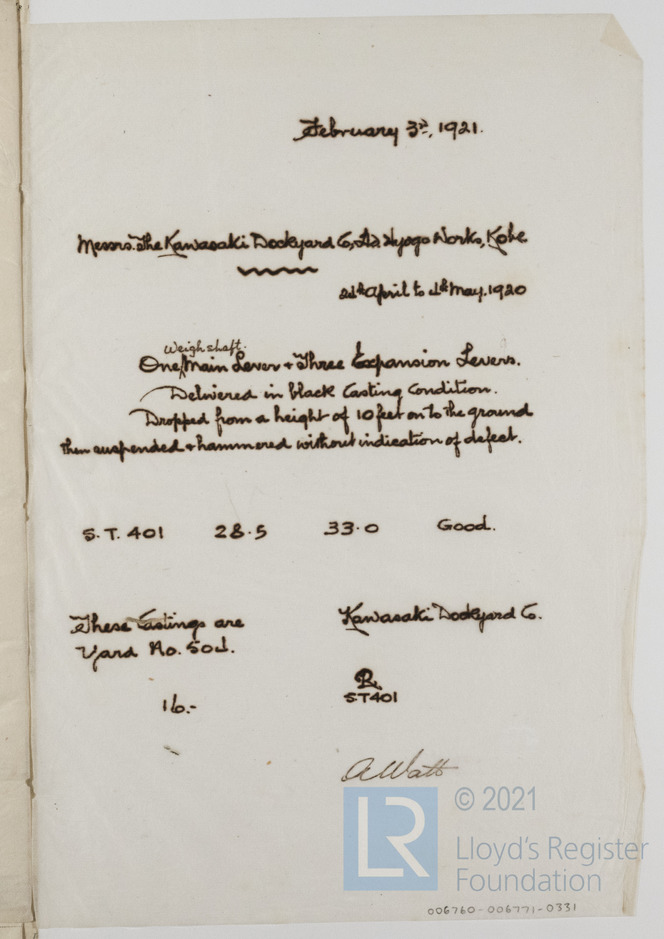 February 3rd, 1921.
Messrs. The Kawasaki Dockyard Co, Ltd. Hyogo Works, Kobe
to 4th May. 1920
Weigh shaft.
One Main Lever + Three Expansion Levers.
Delivered in black Casting Condition.
Dropped from a height of 10 feet on to the ground
then suspended + hammered without indication of defect.
S.T. 401 28.5 33.0 Good.
These Castings are
Yard No. 504.
Kawasaki Dockyard Co.
16.-
R.
S.T401
A Watt
LR
© 2021
Lloyd's Register
Foundation
006760-006771-0331